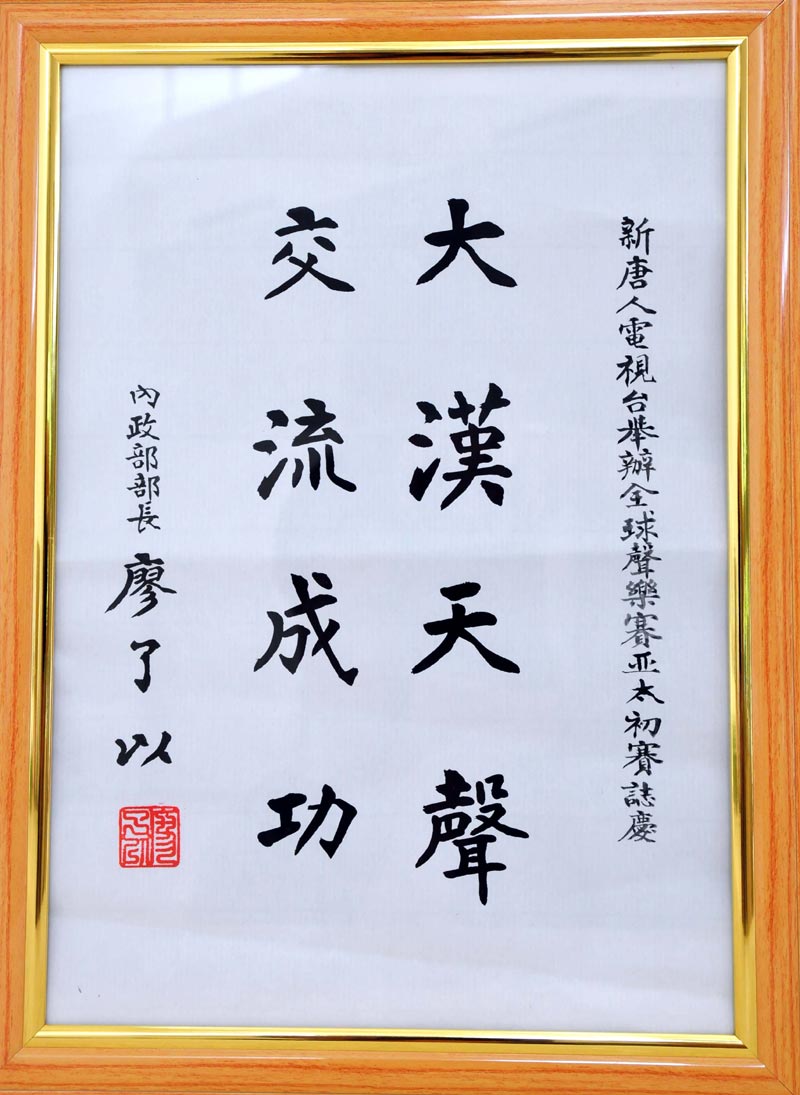 新唐人電視台舉辦全球聲樂賽亞太初賽誌慶
大漢天聲
交流成功
內政部部長 廖了以